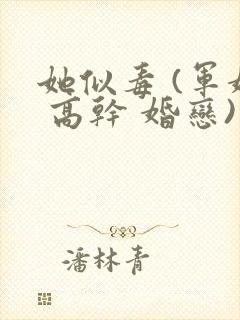 她似毒(軍婚
高幹 婚戀)
潘林青